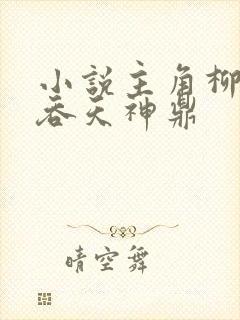 小说主角柳
吞天神鼎
晴空舞